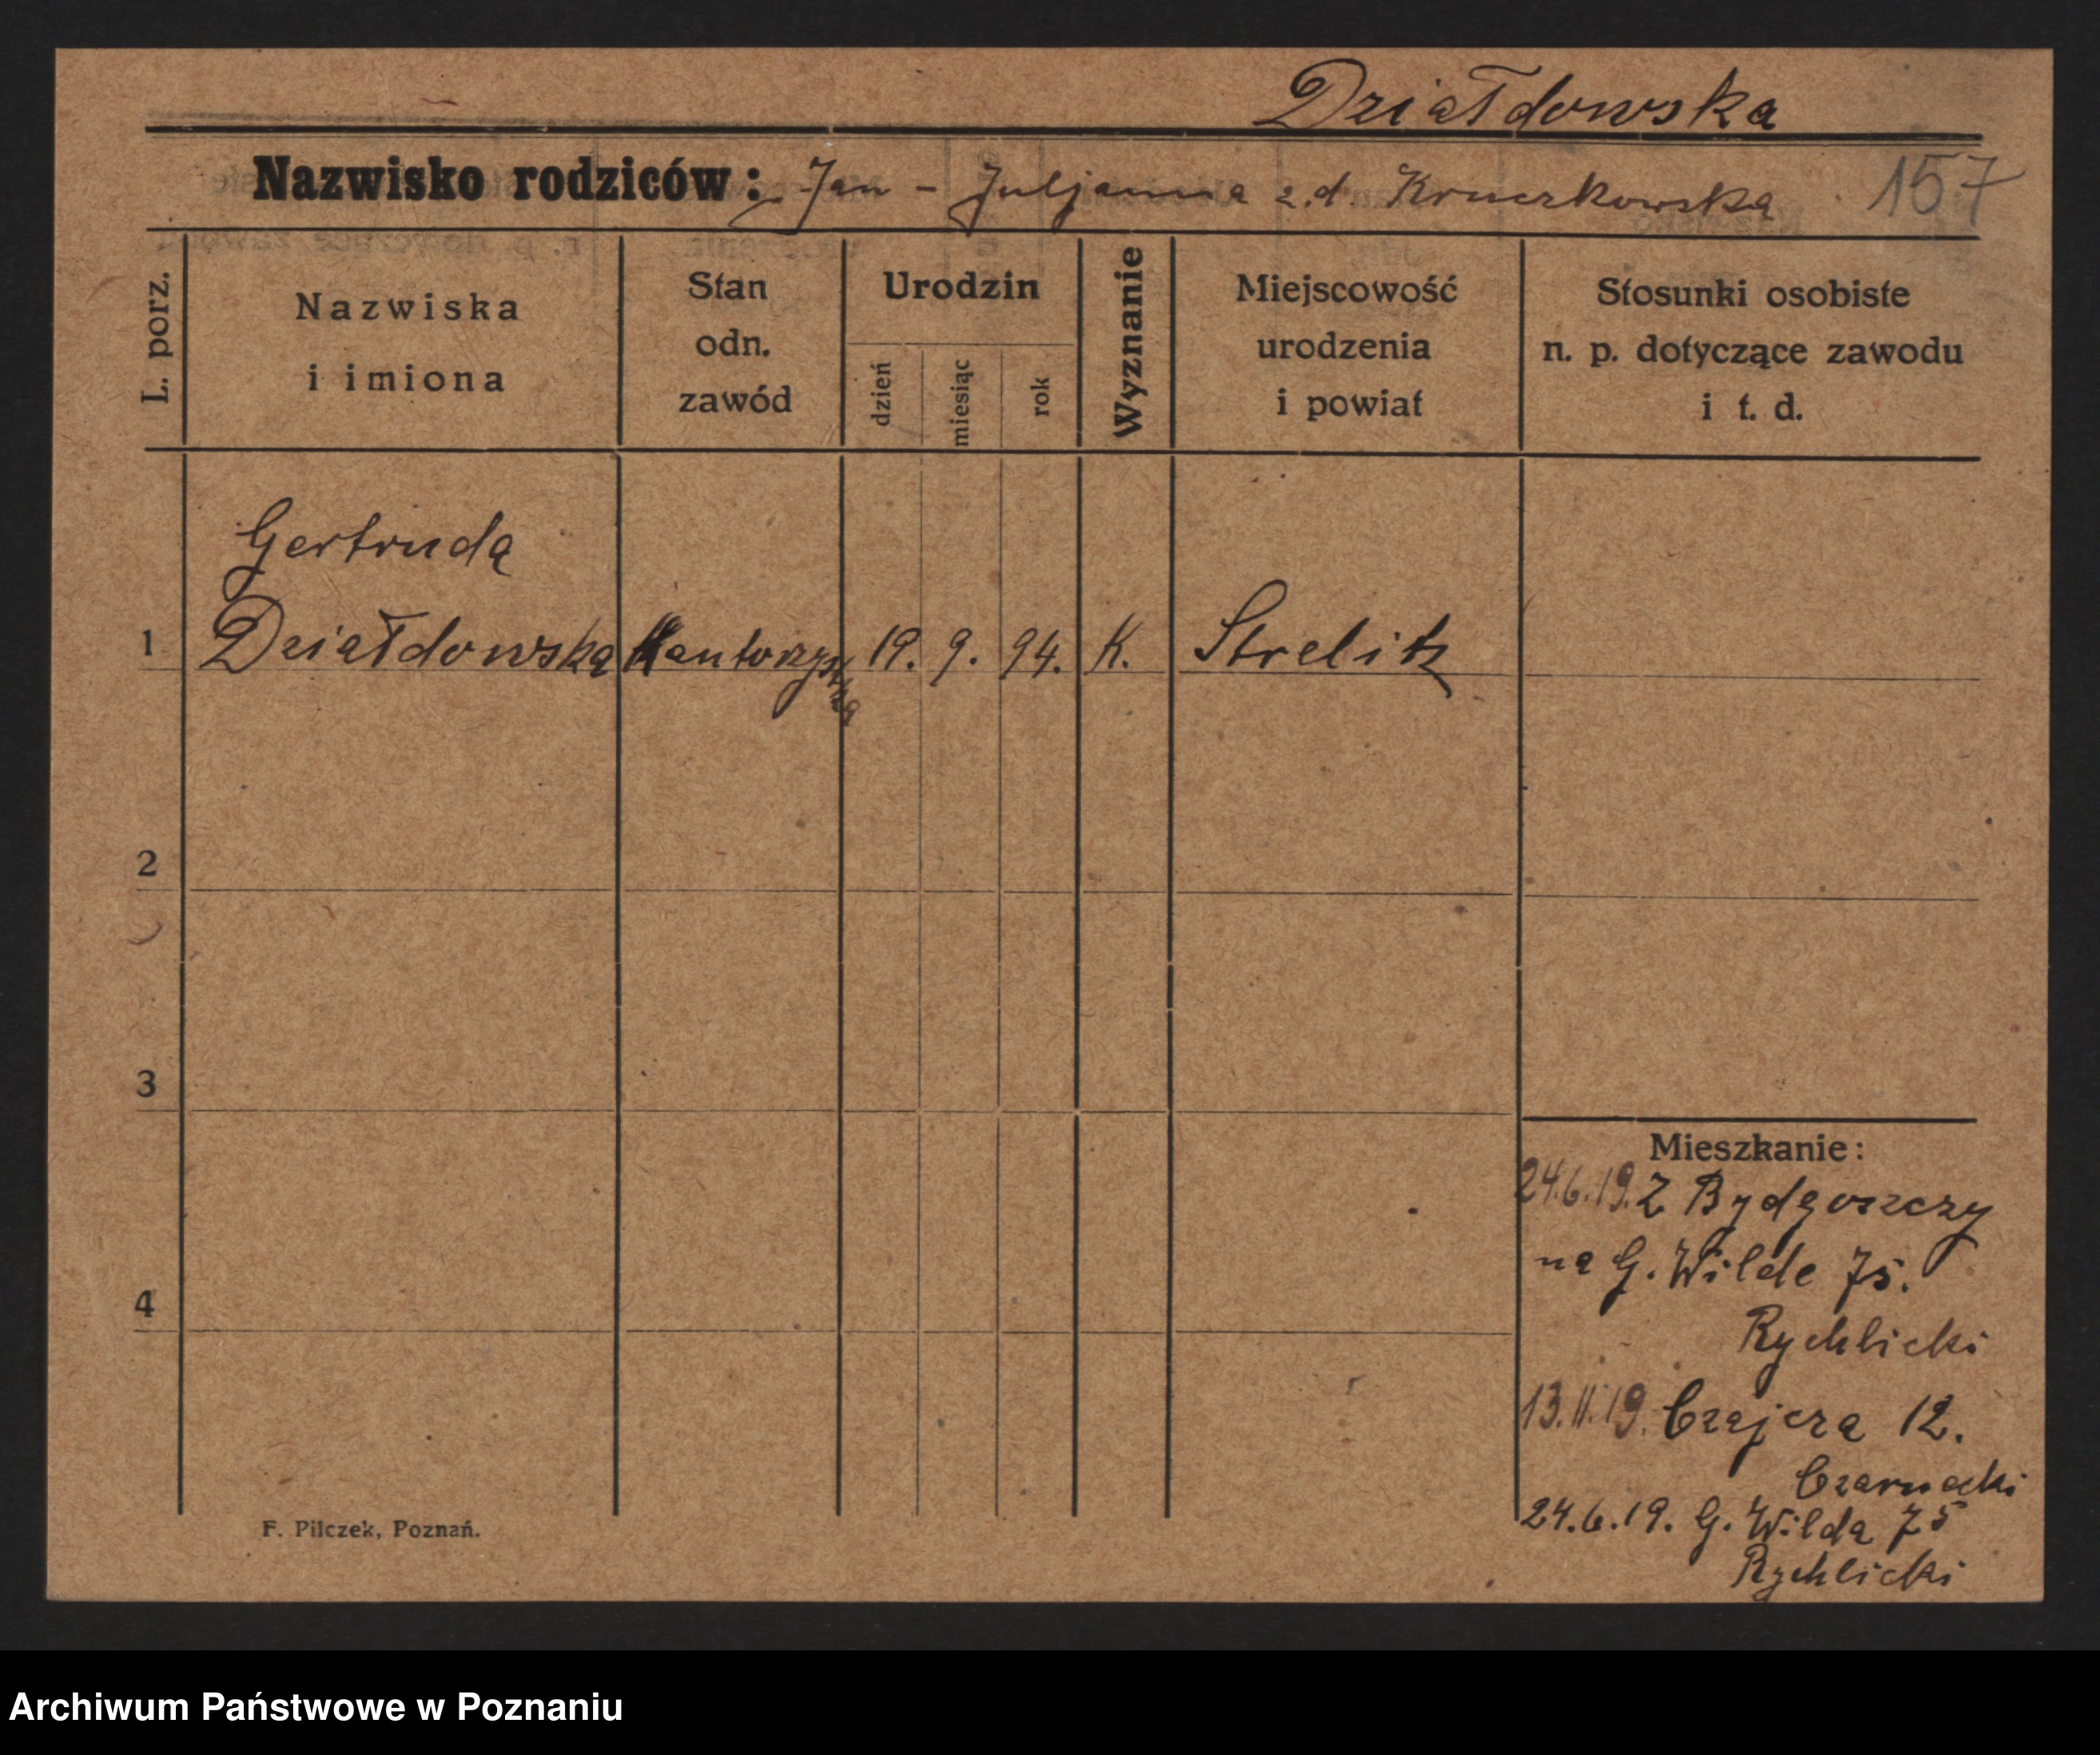 Działdowska
Nazwisko rodziców: Jan - Juljanna z.d. Kruczkowska
157
L. porz.
Nazwiska
i imiona
Stan
odn.
zawód
Urodzin
dzień
miesiąc
rok
Wyznanie
Miejscowość
urodzenia
i powiat
Stosunki osobiste
n. p. dotyczące zawodu
i t. d.
Gertruda
1 Działdowska Kantorzystka 19. 9. 94. K. Strelitz
2
3
4
Mieszkanie:
24.6.19. Z Bydgoszczy
na G. Wilde 75.
Rychlicki
13.11.19. Czajcza 12.
Czarnecki
24.6.19. G. Wilda 75
Rychlicki
F. Pilczek, Poznań.
Archiwum Państwowe w Poznaniu